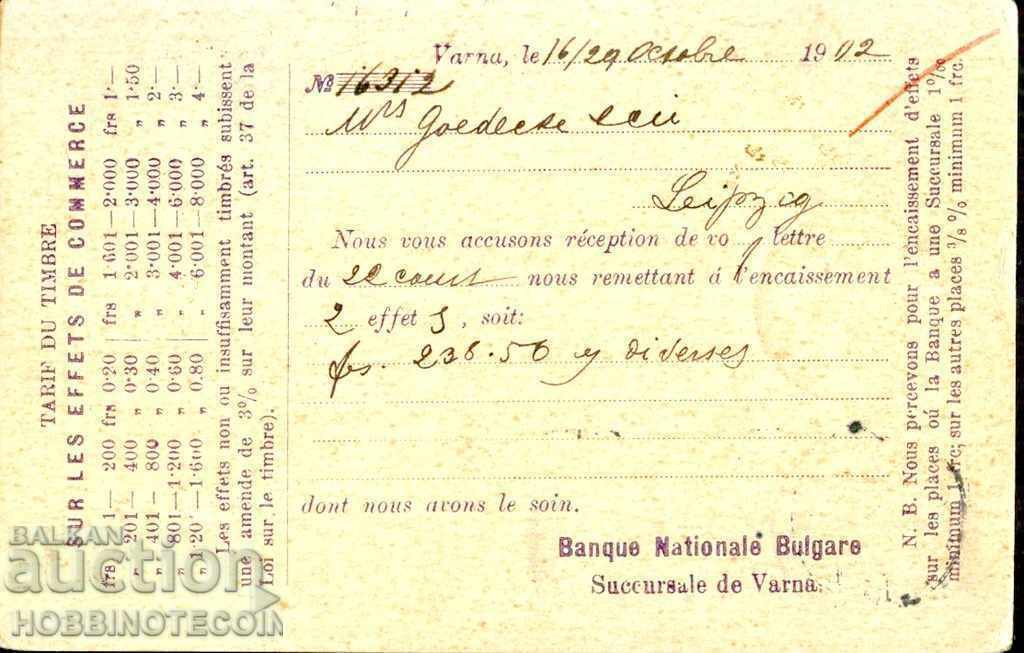 Varna, le 16/29 Octobre 1902
№ 16312
Mrs Goedecke
Leipzig
Nous vous accusons réception de vo lettre
du 22 court nous remettant á l'encaissement
2 effet s, soit:
fs. 238.50 diverses
dont nous avons le soin.
Banque Nationale Bulgare
Succursale de Varna.
TARIF DU TIMBRE
SUR LES EFFETS DE COMMERCE
frs 1— 200 frs 0·20 frs 1·601—2·000 frs 1·—
„ 201— 400 „ 0·30 „ 2·001—3·000 „ 1·50
„ 401— 800 „ 0·40 „ 3·001—4·000 „ 2·—
„ 801—1·200 „ 0·60 „ 4·001—6·000 „ 3·—
„ 1·20 —1·600 „ 0.80 „ 6·001—8·000 „ 4·—
Les effets non ou insuffisamment timbrés subissent
une amende de 3% sur leur montant (art. 37 de la
Loi sur le timbre).
N. B. Nous percevons pour l'encaissement d'effets
sur les places oú la Banque a une Succursale 1‰
minimum 1 frc; sur les autres places ³/₈ % minimum 1 frc.
BALKAN
auction
HOBBINOTECOIN